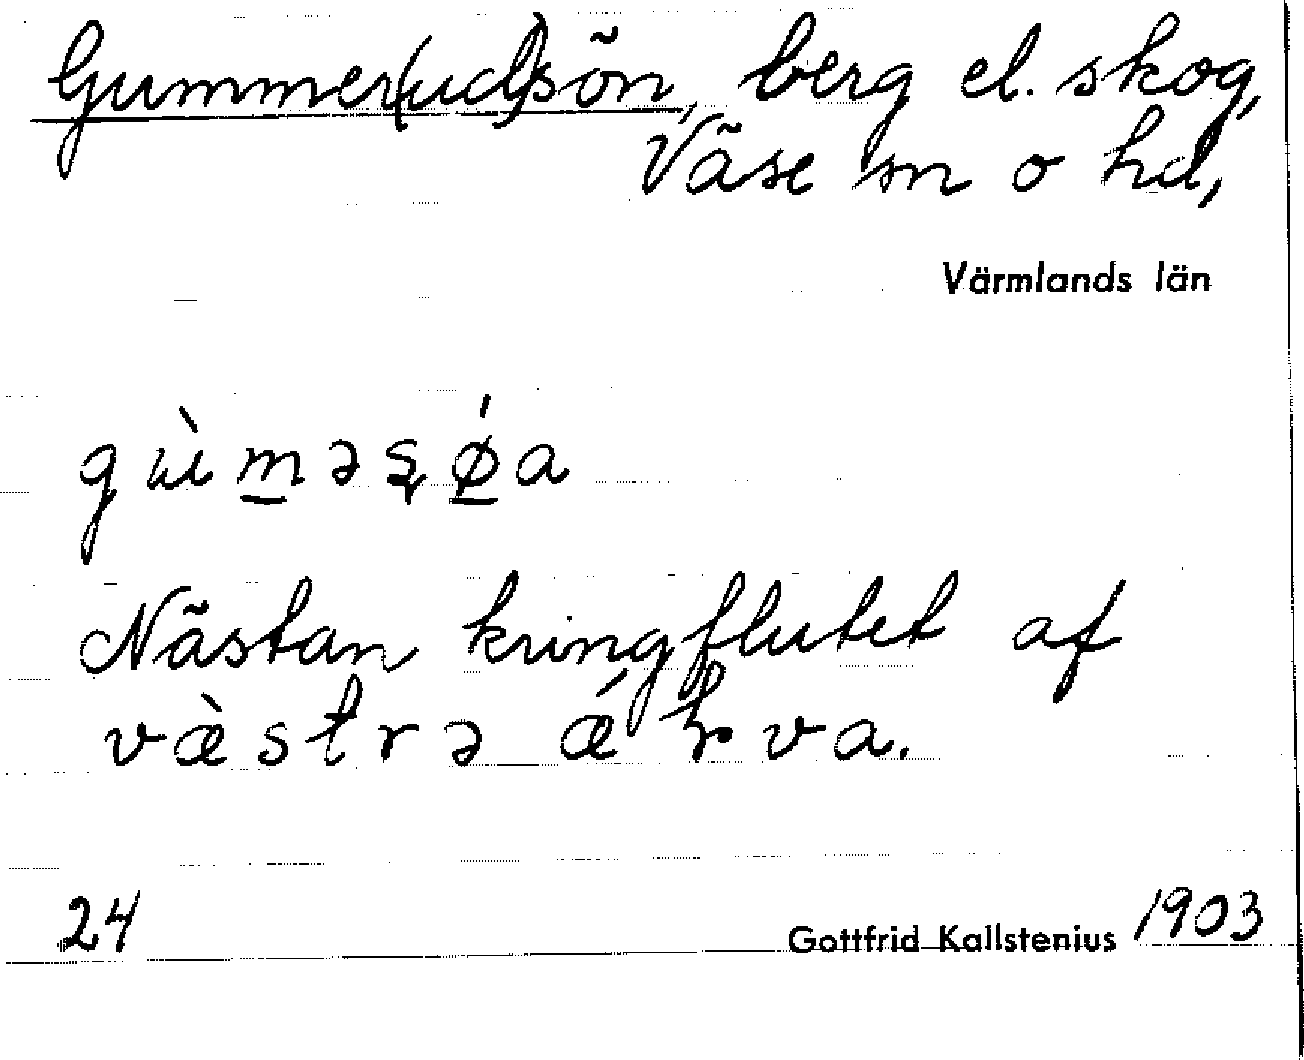 Gummer(ud)sön, berg el. skog,
Väse sn o hd,
Värmlands län
gùməʂǿa
Nästan kringflutet af
væ̀strə ǽɽva.
24 Gottfrid Kallstenius 1903